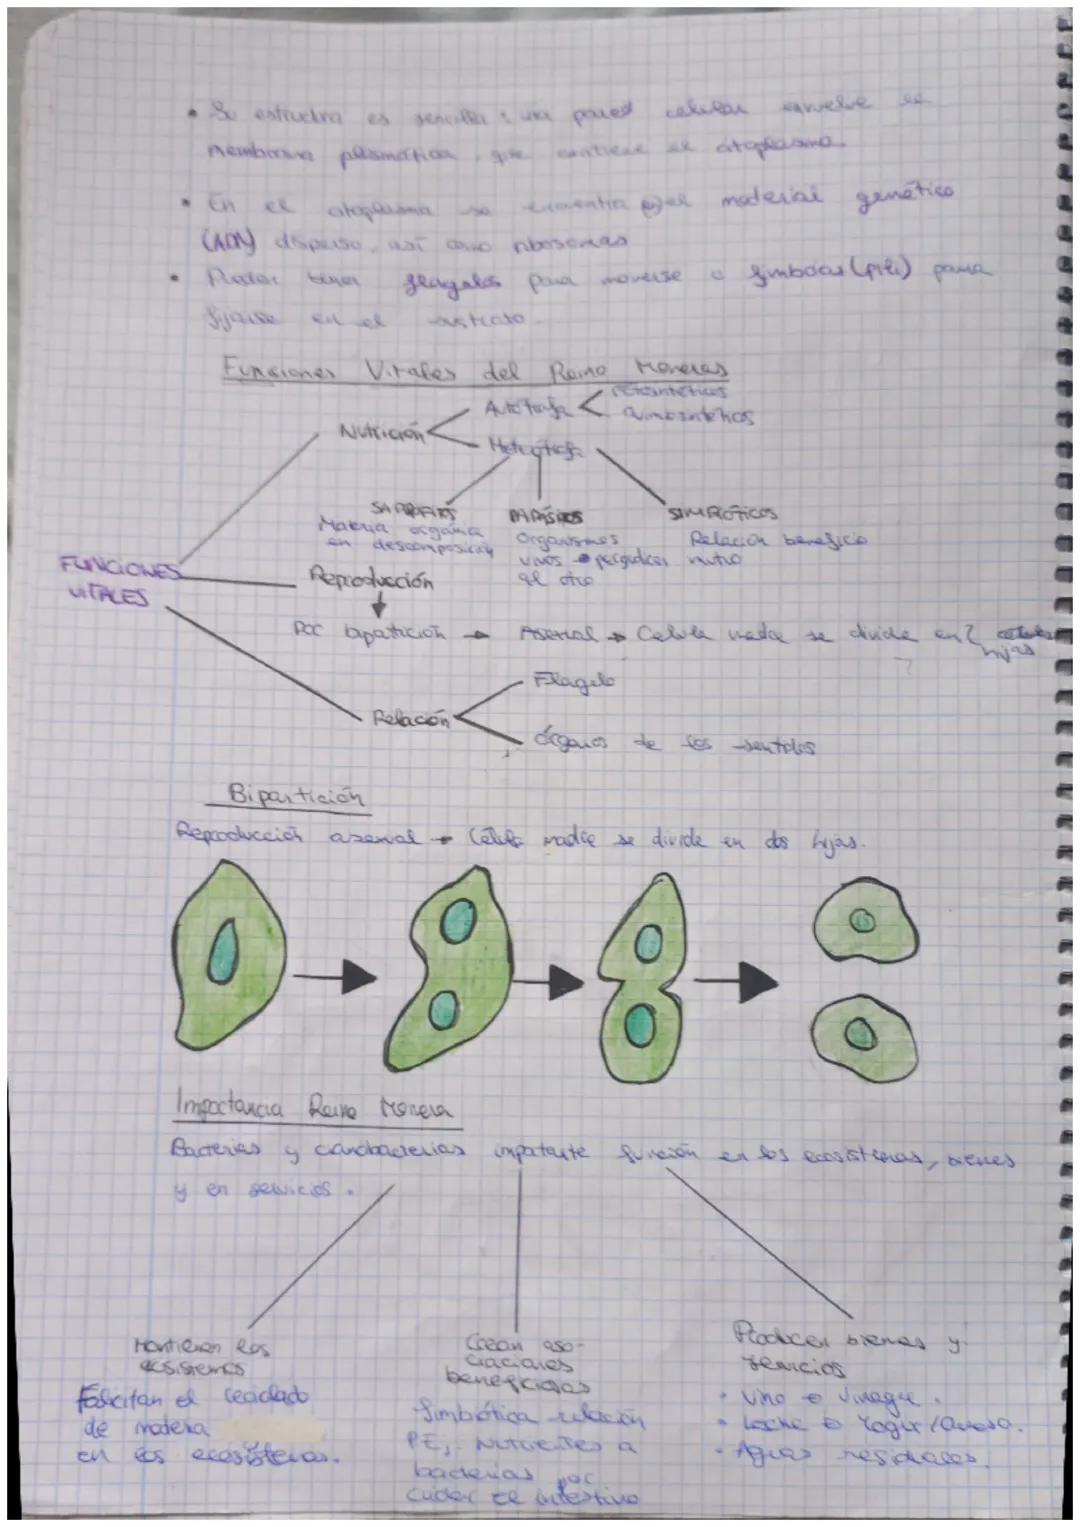 • Su estructura es sencilla: una pared celular envuelve la
membrana plasmática, que contiene el citoplasma.
• En el citoplasma se encuentra el material genético
(ADN) disperso, así como ribosomas
• Pueden tener flagelos para moverse o fimbrias (pili) para
fijarse en el sustrato.
Funciones Vitales del Reino Moneras
Fotosintéticos
Autótrofa
Quimiosintéticos
Nutrición
Heterótrofa
SAPROFITOS
PARÁSITOS
SIMBIÓTICOS
Materia orgánica
en descomposición
Organismos
vivos perjudican
al otro
Relación beneficio
mutuo
FUNCIONES
VITALES
Reproducción
Por bipartición → Asexual → Celula madre se divide en 2 celulas
hijas
Flagelo
Relación
órganos de los sentidos
Bipartición
Reproducción asexual → Célula madre se divide en dos hijas.
Importancia Reino Monera
Bacterias y cianobacterias importante función en los ecosistemas, bienes
y en servicios.
Mantienen los
ecosistemas
Facilitan el reciclado
de materia
en los ecosistemas.
Crean aso-
ciaciones
beneficiosas
Simbiótica relación
PEj. Nutrientes a
bacterias por
cuidar el intestino
Producen bienes y
servicios
• Vino o Vinagre.
• Leche o Yogur/Queso.
• Aguas residuales.